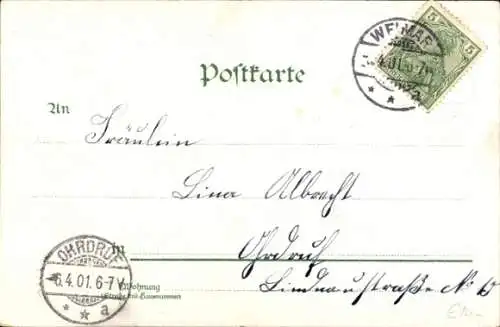 WEIMAR
5
5
.4.01.6-7V.
a
Postkarte
An
Fräulein
Lina Albrecht
in Ohrdruf
Lindenaustraße No
OHRDRUF
6.4.01.6-7V
a
Wohnung
(Straße und Hausnummer)